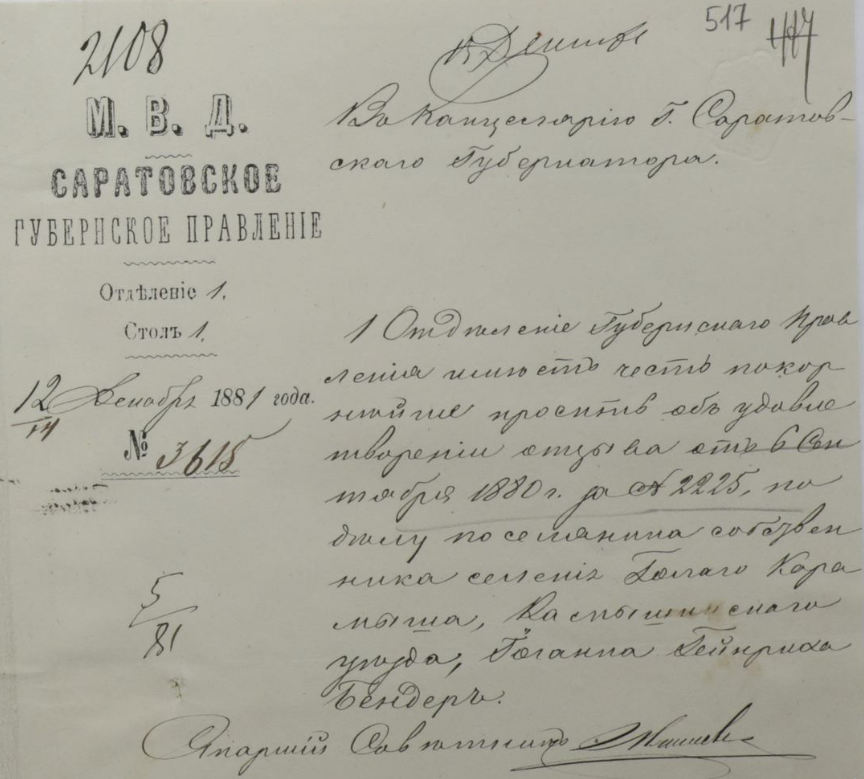 2108
517
М. В. Д.
САРАТОВСКОЕ
ГУБЕРНСКОЕ ПРАВЛЕНІЕ
Отдѣленіе 1.
Столъ 1.
12 Декабря 1881 года.
14
№ 3615
5
81
Въ Канцелярію Г. Саратов-
скаго Губернатора.
1 Отдѣленіе Губернскаго Прав
ленія имѣетъ честь покор
нѣйше просить объ удовле
твореніи отзыва отъ 6 Сен
тября 1880 г. за № 2225, по
дѣлу поселянина собствен
ника селенія Голаго Кара
мыша, Камышинскаго
уѣзда, Іоганна Гейнриха
Бендеръ.
Старшій Совѣтникъ